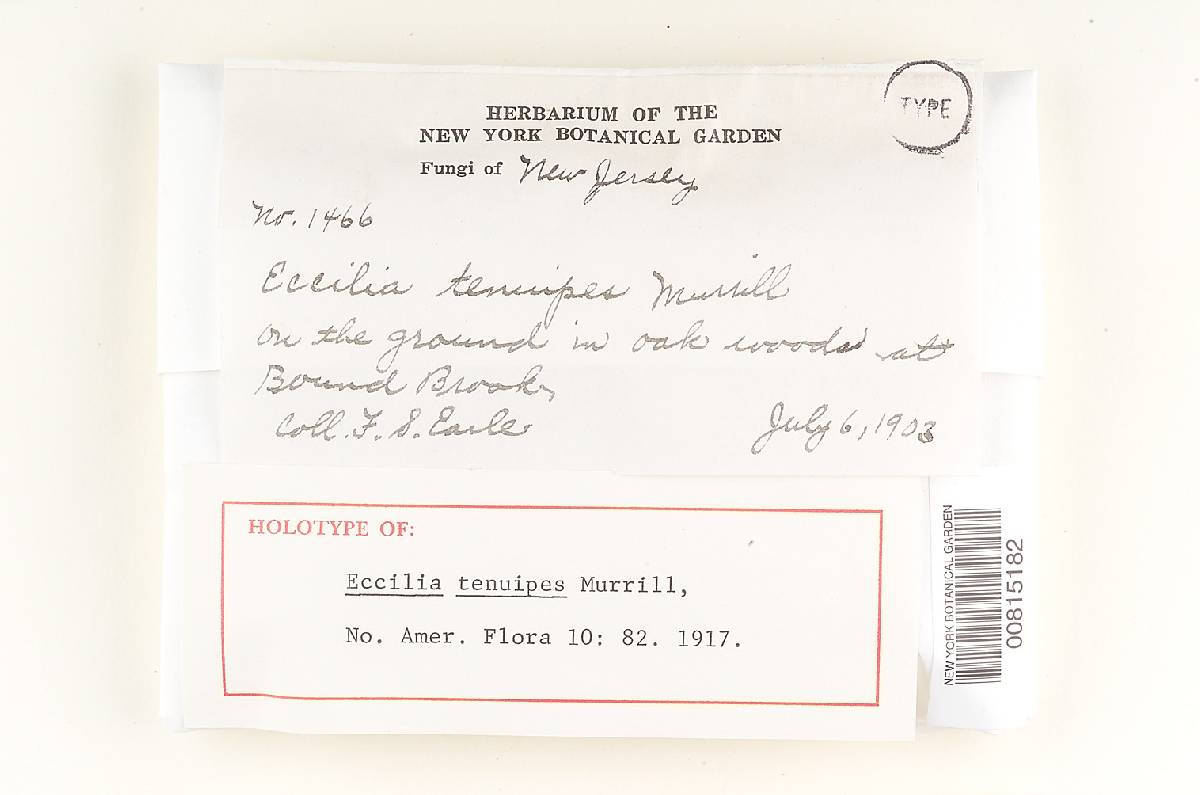 TYPE
HERBARIUM OF THE
NEW YORK BOTANICAL GARDEN
Fungi of New Jersey
No. 1466
Eccilia tenuipes Murrill
on the ground in oak woods at
Bound Brook,
Coll. F. S. Earle July 6, 1903
HOLOTYPE OF:
Eccilia tenuipes Murrill,
No. Amer. Flora 10: 82. 1917.
NEW YORK BOTANICAL GARDEN
00815182